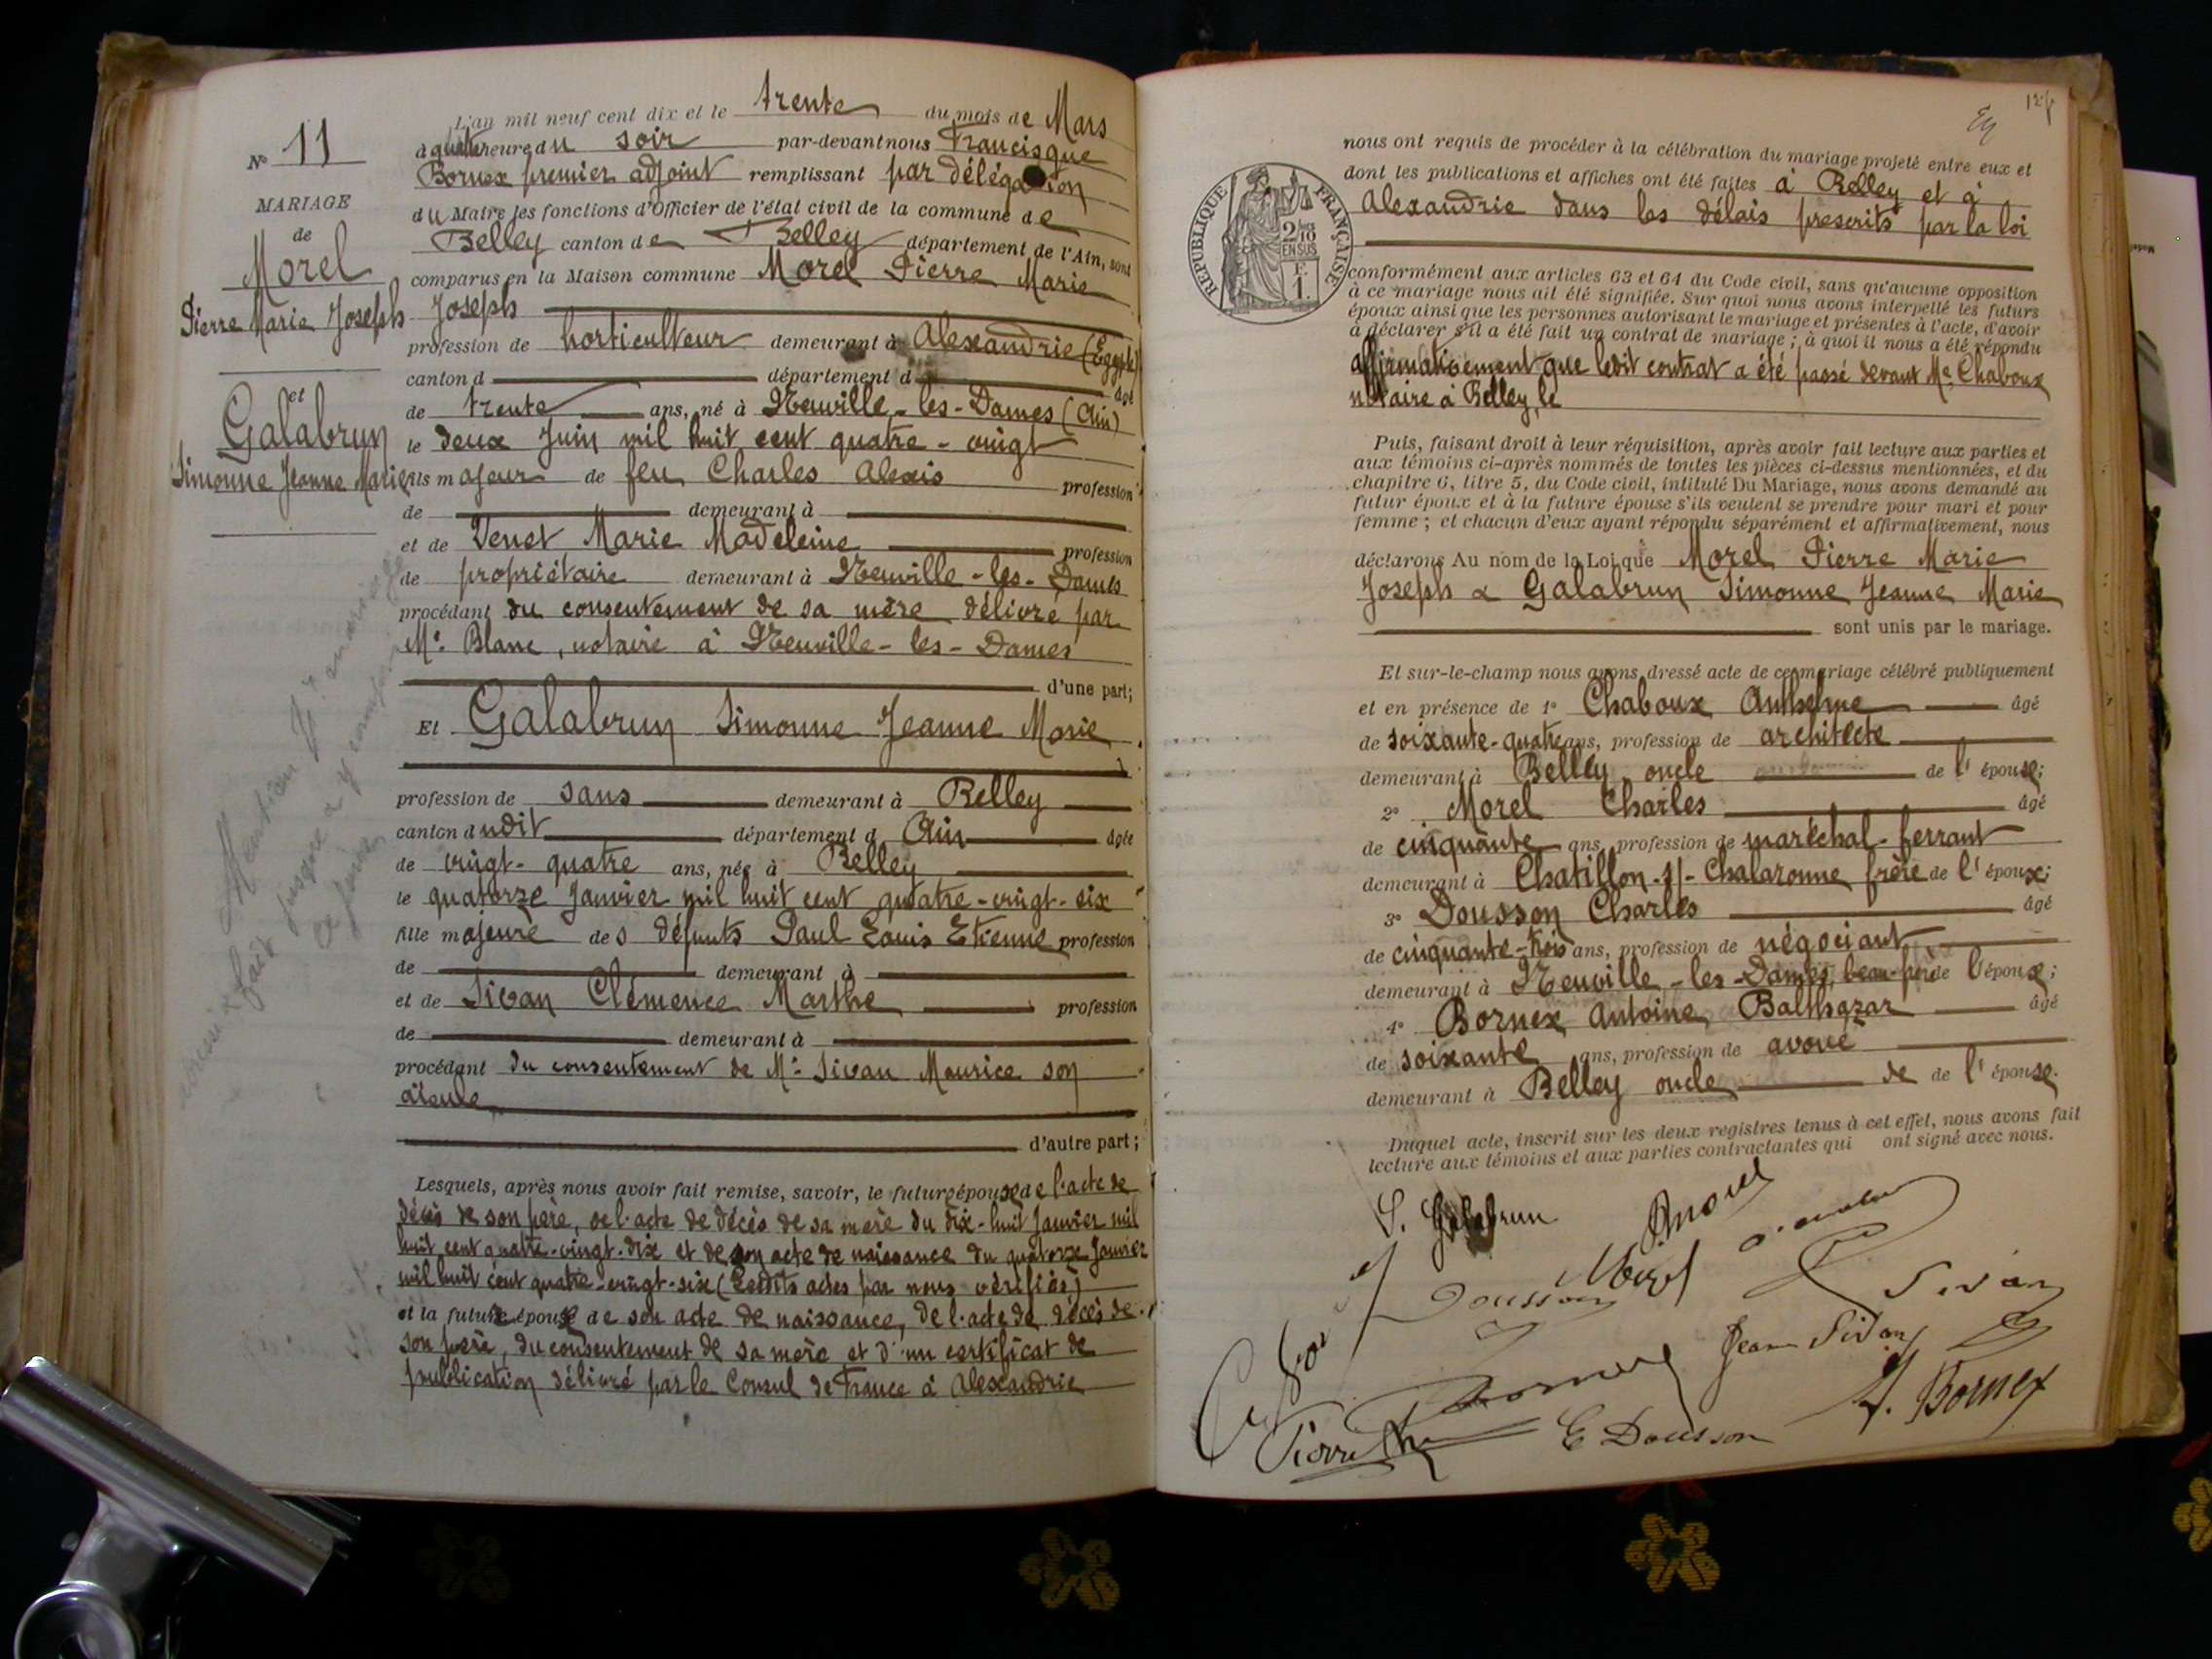 N° 11
MARIAGE
de
Morel
Pierre Marie Joseph
et
Galabrun
Simonne Jeanne Marie
L'an mil neuf cent dix et le trente du mois de Mars
à quatre heure du soir par-devant nous Francisque
Bornex premier adjoint remplissant par délégation
du Maire les fonctions d'Officier de l'état civil de la commune de
Belley canton de Belley département de l'Ain, sont
comparus en la Maison commune Morel Pierre Marie
Joseph
profession de horticulteur demeurant à Alexandrie (Egypte)
canton d département d âgé
de trente ans, né à Neuville-les-Dames (Ain)
le deux Juin mil huit cent quatre-vingt
fils majeur de feu Charles Alexis profession
de demeurant à
et de Venet Marie Madeleine profession
de propriétaire demeurant à Neuville-les-Dames
procédant du consentement de sa mère délivré par
Me Blanc, notaire à Neuville-les-Dames
d'une part;
Et Galabrun Simonne Jeanne Marie
profession de sans demeurant à Belley
canton dudit département d Ain âgée
de vingt-quatre ans, née à Belley
le quatorze Janvier mil huit cent quatre-vingt-six
fille majeure des défunts Paul Louis Etienne profession
de demeurant à
et de Sivan Clémence Marthe profession
de demeurant à
procédant du consentement de Mr Sivan Maurice son
aïeule
d'autre part;
Lesquels, après nous avoir fait remise, savoir, le futur épouse de l'acte de
décès de son père, de l'acte de décès de sa mère du dix-huit Janvier mil
huit cent quatre-vingt-dix et de son acte de naissance du quatorze Janvier
mil huit cent quatre-vingt-six (Lesdits actes par nous vérifiés)
et la future époux de son acte de naissance, de l'acte de décès de
son père, du consentement de sa mère et d'un certificat de
publication délivré par le Consul de France à Alexandrie
REPUBLIQUE FRANÇAISE
2/10 EN SUS
F. 1.
nous ont requis de procéder à la célébration du mariage projeté entre eux et
dont les publications et affiches ont été faites à Belley et à
Alexandrie dans les délais prescrits par la loi
conformément aux articles 63 et 64 du Code civil, sans qu'aucune opposition
à ce mariage nous ait été signifiée. Sur quoi nous avons interpellé les futurs
époux ainsi que les personnes autorisant le mariage et présentes à l'acte, d'avoir
à déclarer s'il a été fait un contrat de mariage; à quoi il nous a été répondu
affirmativement que ledit contrat a été passé devant Me Chaboux
notaire à Belley, le
Puis, faisant droit à leur réquisition, après avoir fait lecture aux parties et
aux témoins ci-après nommés de toutes les pièces ci-dessus mentionnées, et du
chapitre 6, titre 5, du Code civil, intitulé Du Mariage, nous avons demandé au
futur époux et à la future épouse s'ils veulent se prendre pour mari et pour
femme; et chacun d'eux ayant répondu séparément et affirmativement, nous
déclarons Au nom de la Loi que Morel Pierre Marie
Joseph & Galabrun Simonne Jeanne Marie
sont unis par le mariage.
Et sur-le-champ nous avons dressé acte de ce mariage célébré publiquement
et en présence de 1° Chaboux Anthelme âgé
de soixante-quatre ans, profession de architecte
demeurant à Belley oncle de l'épouse;
2° Morel Charles âgé
de cinquante ans, profession de maréchal-ferrant
demeurant à Chatillon-s/-Chalaronne frère de l'époux;
3° Dousson Charles âgé
de cinquante-trois ans, profession de négociant
demeurant à Neuville-les-Dames, beau-frère de l'époux;
4° Bornex Antoine Balthazar âgé
de soixante ans, profession de avoué
demeurant à Belley oncle de de l'épouse.
Duquel acte, inscrit sur les deux registres tenus à cet effet, nous avons fait
lecture aux témoins et aux parties contractantes qui ont signé avec nous.
S. Galabrun
Morel
Dousson
Sivan
Jean Sivan
Bornex
F. Bornex
C Dousson